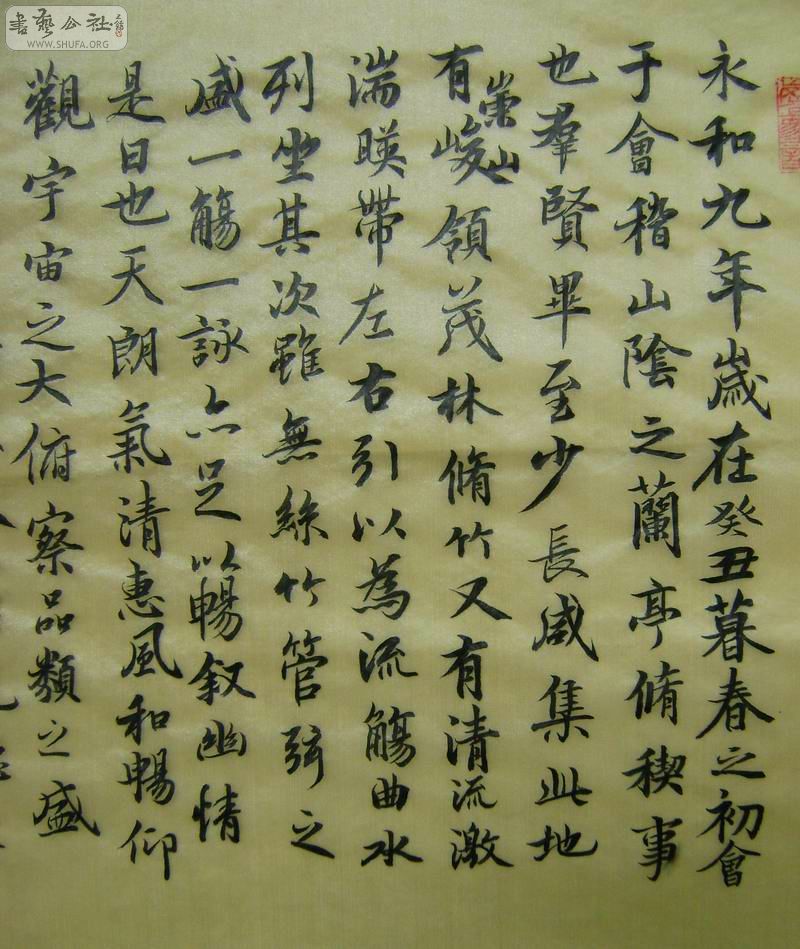 永和九年歲在癸丑暮春之初會
于會稽山陰之蘭亭脩稧事
也羣賢畢至少長咸集此地
有崇山峻領茂林脩竹又有清流激
湍暎帶左右引以為流觴曲水
列坐其次雖無絲竹管弦之
盛一觴一詠亦足以暢叙幽情
是日也天朗氣清惠風和暢仰
觀宇宙之大俯察品類之盛
書藝公社
WWW.SHUFA.ORG